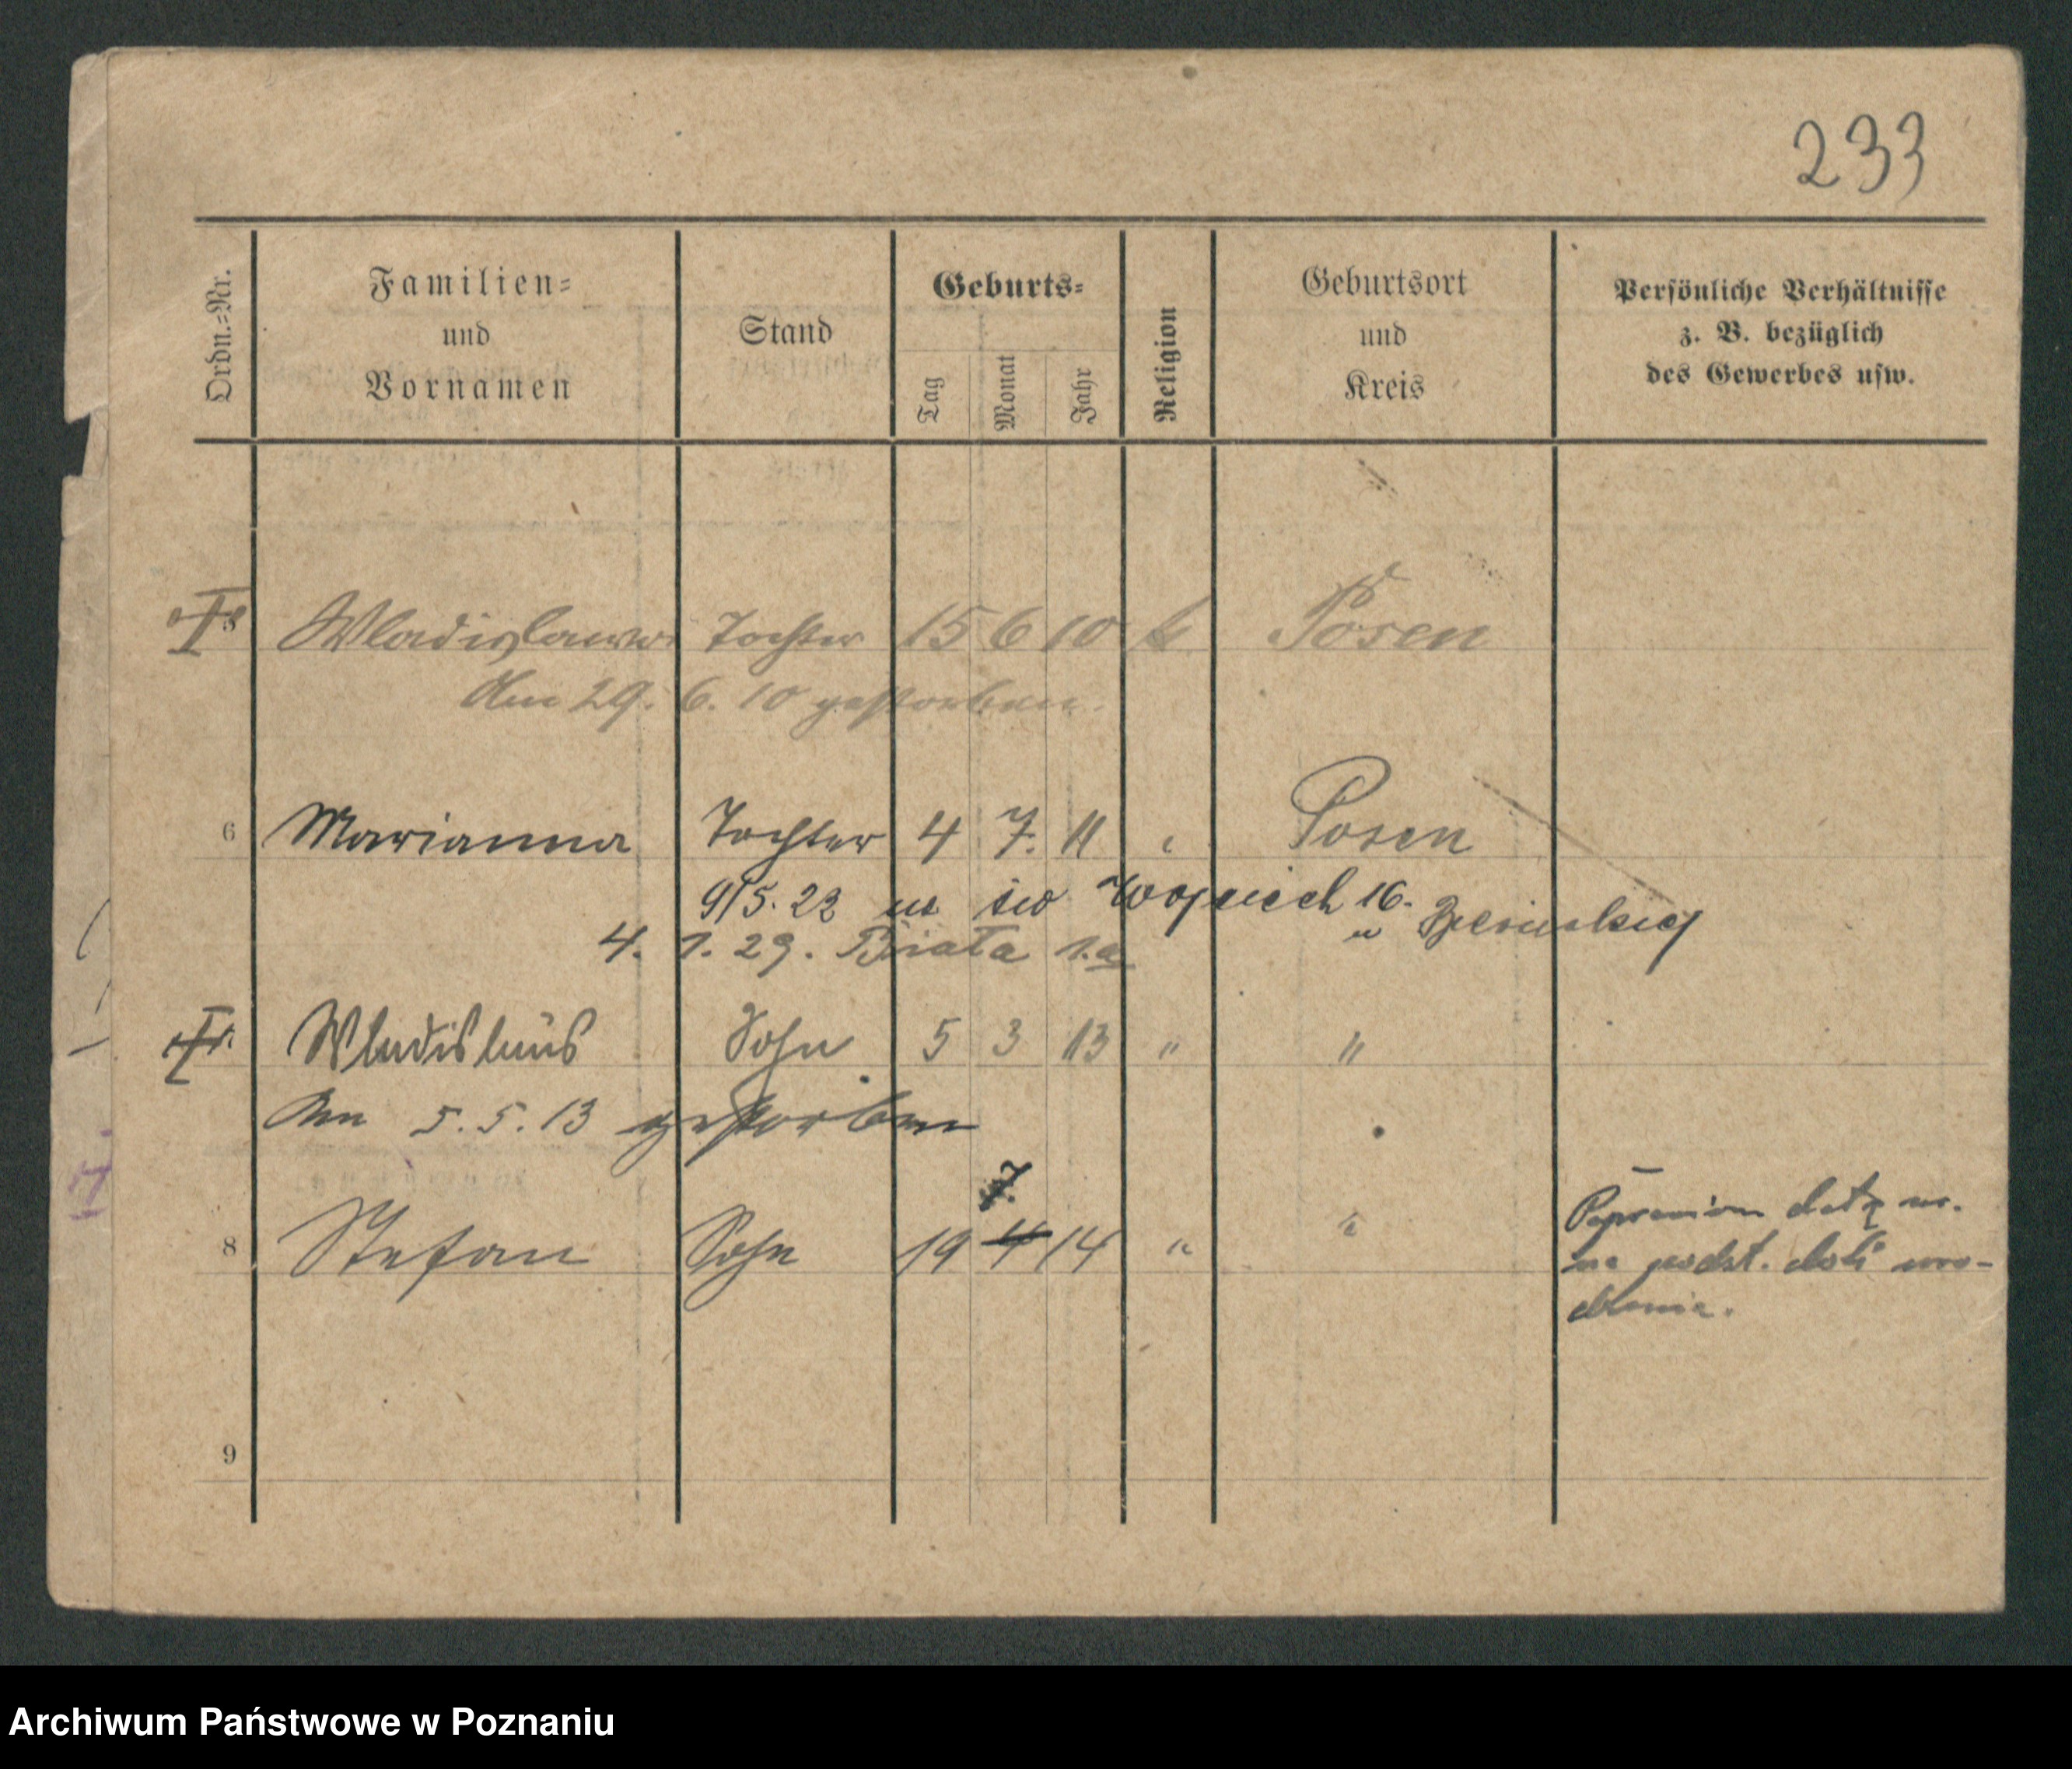 233
Ordn.=Nr.
Familien=
und
Vornamen
Stand
Geburts=
Tag
Monat
Jahr
Religion
Geburtsort
und
Kreis
Persönliche Verhältnisse
z. B. bezüglich
des Gewerbes usw.
5 Wladislawa Tochter 15 6 10 k Posen
Am 29. 6. 10 gestorben.
6 Marianna Tochter 4 7. 11 " Posen
9/5. 22 św Wojciech 16.
4. 1. 29. Biała 1.a
Wladislaus Sohn 5 3 13 " "
Am 5. 5. 13 gestorben
7.
8 Stefan Sohn 19 4 14 " "
Poprawiono datę ur.
na podst. uro-
dzenia.
9
Archiwum Państwowe w Poznaniu